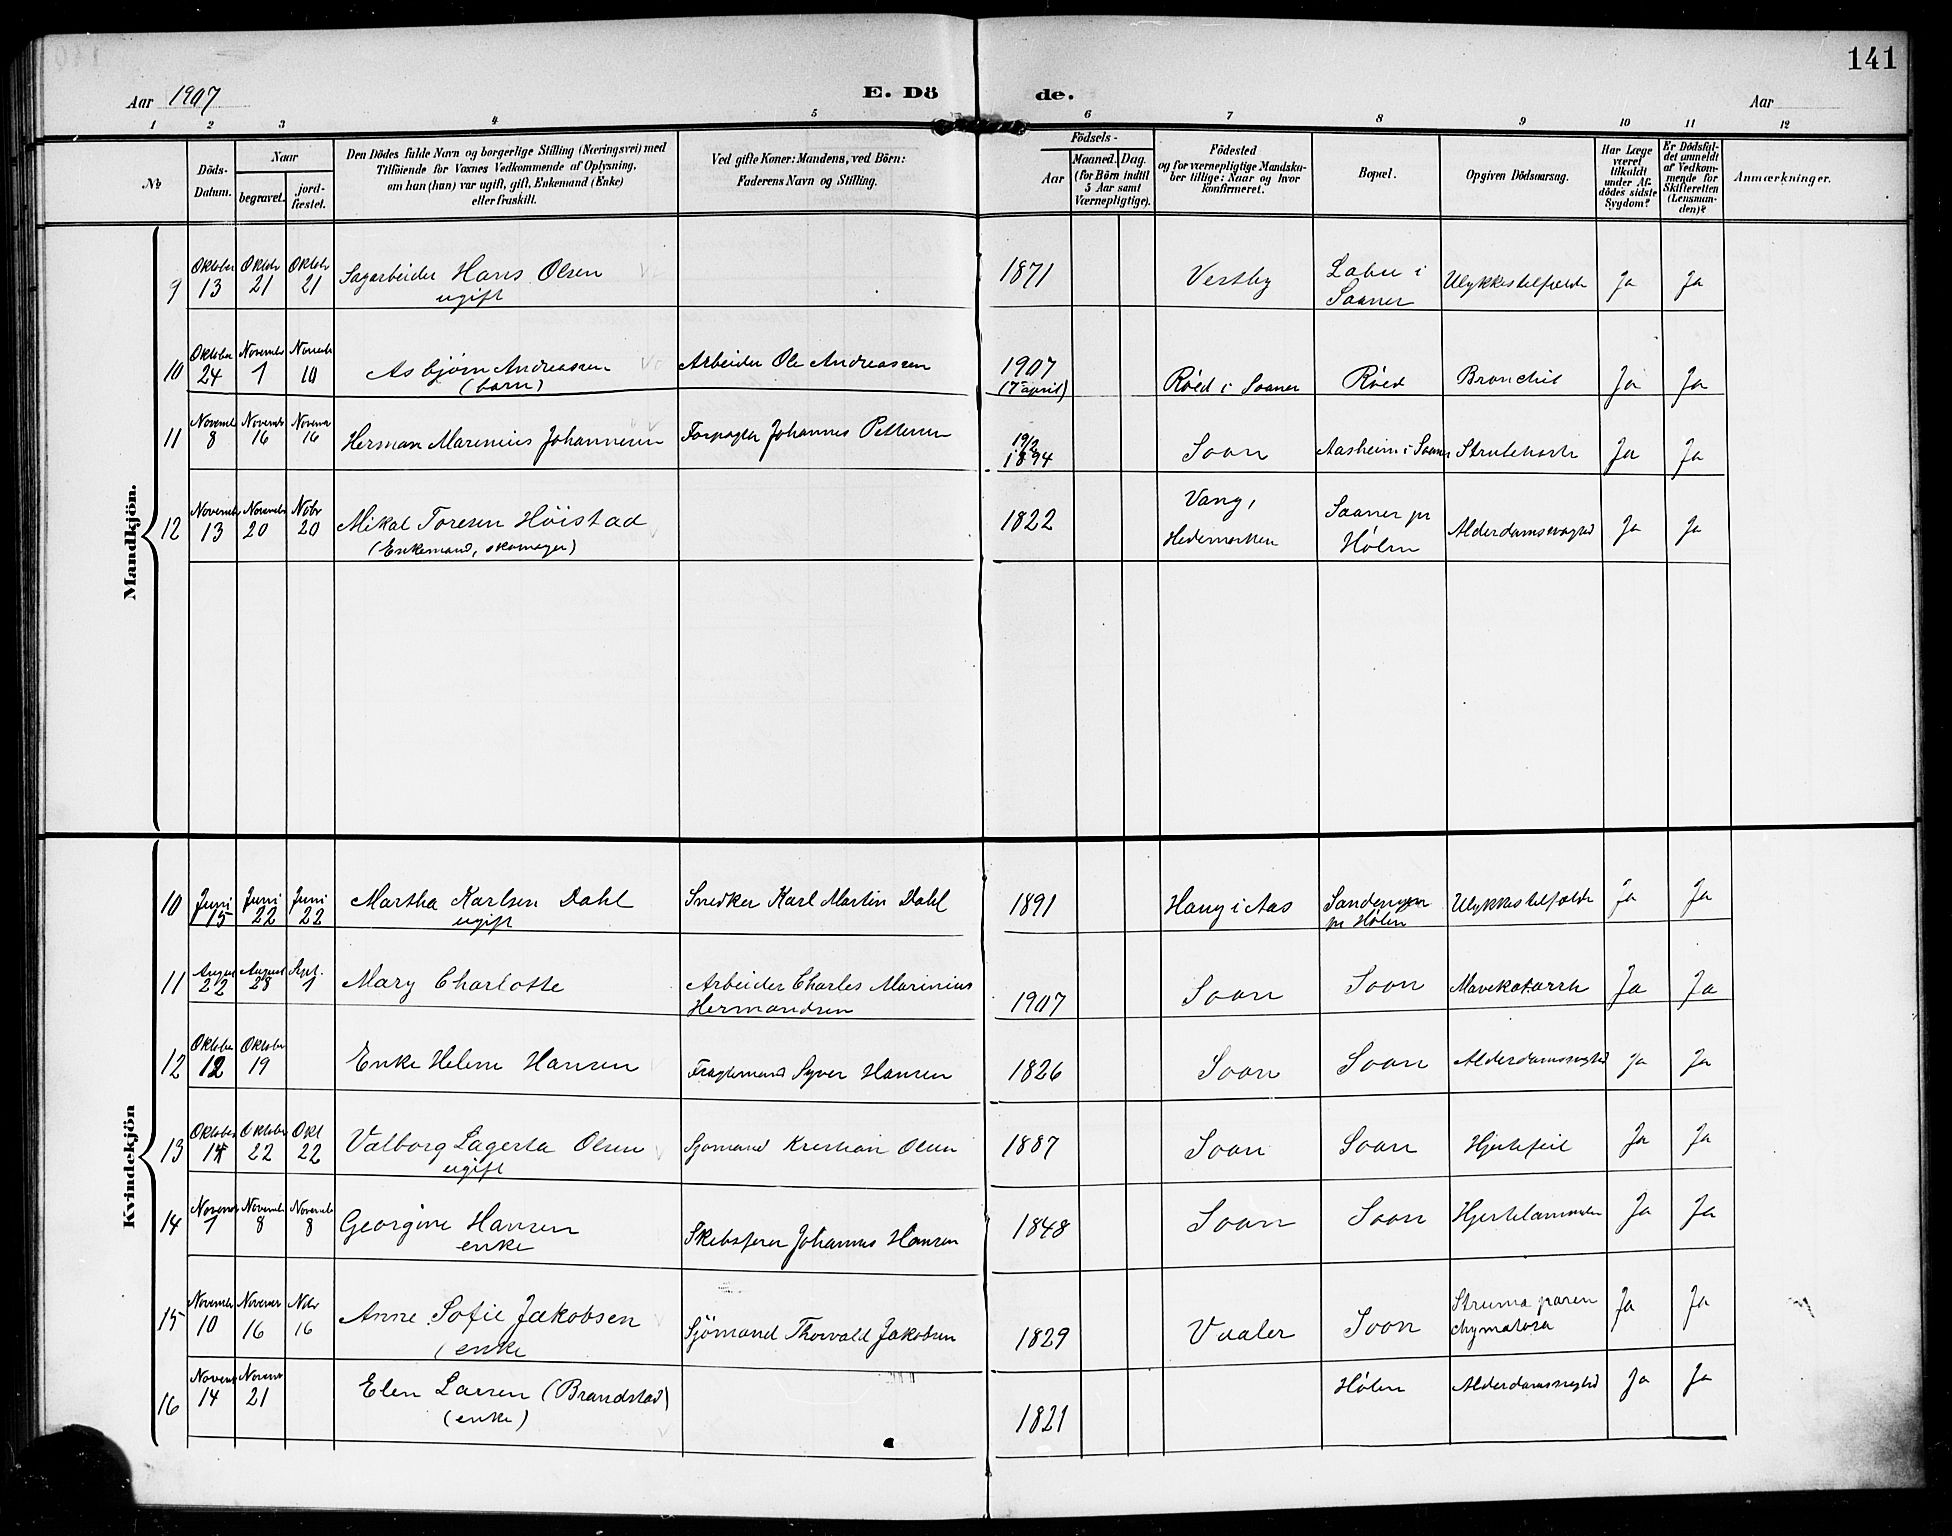 141
Aar 1907
E. Dö de.
Aar
1 2 3 4 5 6 7 8 9 10 11 12
No
Döds-Datum.
Naar
begravet.
jord-fæstet.
Den Dödes fulde Navn og borgerlige Stilling (Næringsvei) med
Tilföiende for Voxnes Vedkommende af Oplysning,
om han (hun) var ugift, gift, Enkemand (Enke)
eller fraskilt.
Ved gifte Koner: Mandens, ved Börn:
Faderens Navn og Stilling.
Födsels-
Aar
Maaned. Dag.
(for Börn indtil
5 Aar samt
Værnepligtige).
Födested
og for værnepligtige Mandska-
ber tillige: Naar og hvor
konfirmeret.
Bopæl.
Opgiven Dödsaarsag.
Har Læge
været
tilkaldt
under Af-
dödes sidste
Sygdom?
Er Dödsfal-
det anmeldt
af Vedkom-
mende for
Skifteretten
(Lensman-
den)?
Anmærkninger.
Mandkjön.
9 Oktober 13 Oktobr 21 Oktobr 21 Sagarbeider Hans Olsen 1871 Vestby Labu i Ulykkestilfælde Ja Ja
ugift Saaner
10 Oktober 24 November 1 Novembr 10 Asbjörn Andreassen Arbeider Ole Andreassen 1907 Röed i Saaner Röed Bronchit Ja Ja
(barn) (7 april)
11 Novembr 8 Novembr 16 Novembr 16 Herman Marinius Johannesen Forpagter Johannes Pettersen 19/2 1894 Soon Aasheim i Saaner Ja Ja
12 November 13 November 20 Nobr 20 Mikal Toresen Höistad 1822 Vang, Saaner pr Alderdomssvaghed Ja Ja
(Enkemand, skomager) Hedemarken Hölen
Kvindekjön
10 Juni 15 Juni 22 Juni 22 Martha Karlsen Dahl Snedker Karl Martin Dahl 1891 Haug i Aas Ulykkestilfælde Ja Ja
ugift pr Hölen
11 August 22 August 28 Sept. 1 Mary Charlotte Arbeider Charles Marinius 1907 Soon Soon Mavekatarrh Ja Ja
Hermandsen
12 Oktober 12 Oktober 19 Enke Helene Hansen Fragtemand Syver Hansen 1826 Soon Soon Alderdomssvaghed Ja Ja
13 Oktober 14 Oktober 22 Okt 22 Valborg Lagerta Olsen Sjömand Kristian Olsen 1887 Soon Soon Hjertefeil Ja Ja
ugift
14 November 1 Novembr 8 Novembr 8 Georgine Hansen Skibsförer Johannes Hansen 1848 Soon Soon Hjertelammelse Ja Ja
enke
15 November 10 November 16 Nobr 16 Anne Sofie Jakobsen Sjömand Thorvald Jakobsen 1829 Vaaler Soon Struma paren Ja Ja
(enke chymatosa
16 Novembr 14 Novembr 21 Elen Larsen (Brandstad) 1821 Hölen Alderdomssvaghed Ja Ja
(enke)